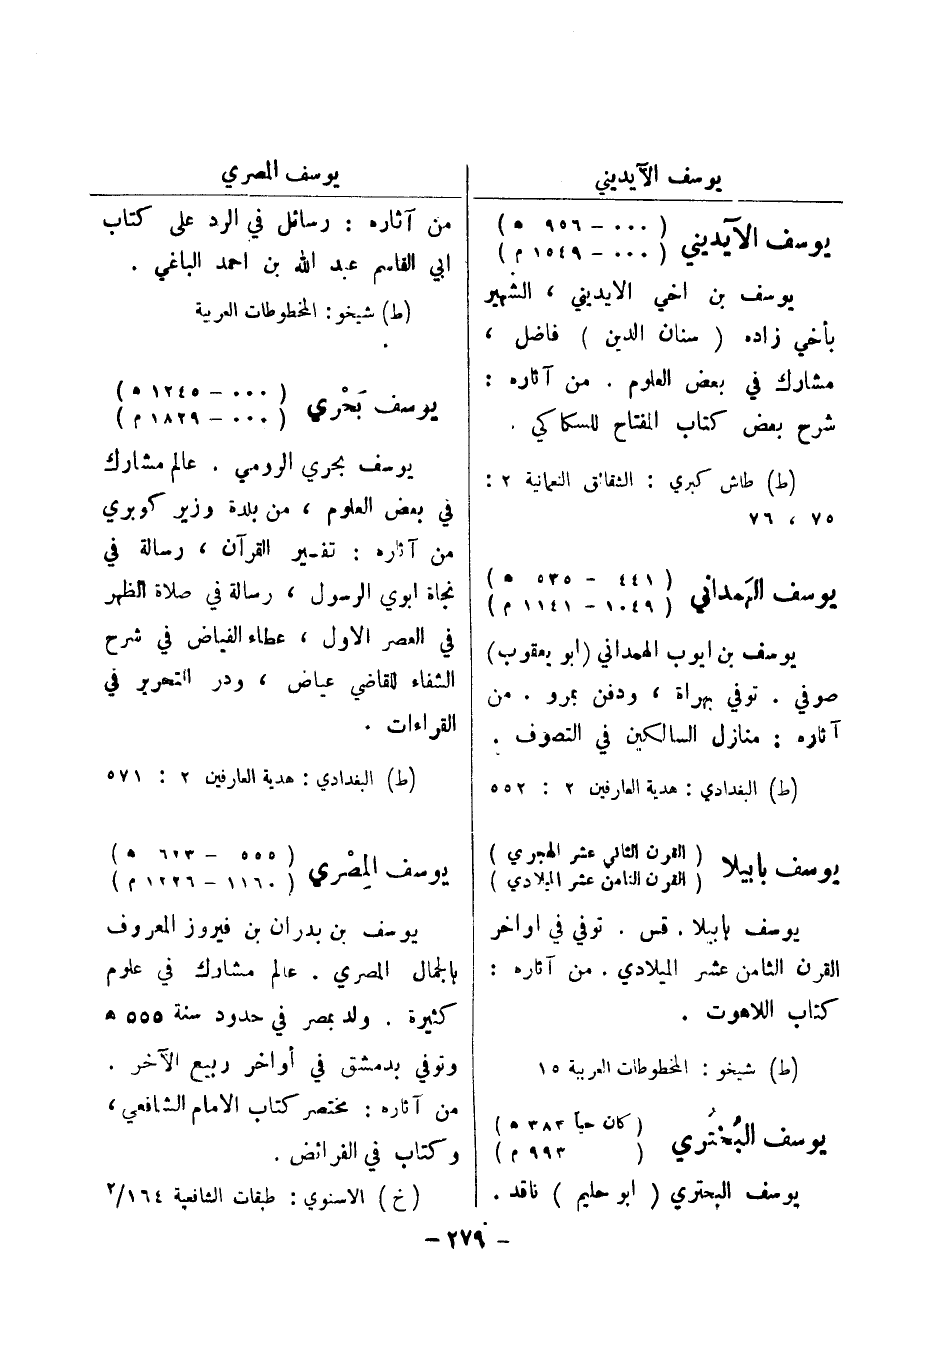 يوسف الآيديني
يوسف الآيديني ( ٠٠٠ – ٩٥٦ ه )
( ٠٠٠ – ١٥٤٩ م )
يوسف بن اخي الايديني ، الشهير
بأخي زاده ( سنان الدين ) فاضل ،
مشارك في بعض العلوم . من آثاره :
شرح بعض كتاب المفتاح للسكاكي .
(ط) طاش كبري : الشقائق النعمانية ٢ :
٧٥ ، ٧٦
يوسف الهَمداني ( ٤٤١ – ٥٣٥ ه )
( ١٠٤٩ – ١١٤١ م )
يوسف بن ايوب الهمداني (ابو يعقوب)
صوفي . توفي بهراة ، ودفن بمرو . من
آثاره : منازل السالكين في التصوف .
(ط) البغدادي : هدية العارفين ٢ : ٥٥٢
يوسف بابيلا ( القرن الثاني عشر الهجري )
( القرن الثامن عشر الميلادي )
يوسف بابيلا . قس . توفي في اواخر
القرن الثامن عشر الميلادي . من آثاره :
كتاب اللاهوت .
(ط) شيخو : المخطوطات العربية ١٥
يوسف البُحْتُري ( كان حياً ٣٨٣ ه )
( ٩٩٣ م )
يوسف البحتري ( ابو حليم ) ناقد .
يوسف المصري
من آثاره : رسائل في الرد على كتاب
ابي القاسم عبد الله بن احمد الباغي .
(ط) شيخو : المخطوطات العربية
يوسف بَحْري ( ٠٠٠ – ١٢٤٥ ه )
( ٠٠٠ – ١٨٢٩ م )
يوسف بحري الرومي . عالم مشارك
في بعض العلوم ، من بلدة وزير كوبري
من آثاره : تفسير القرآن ، رسالة في
نجاة ابوي الرسول ، رسالة في صلاة الظهر
في العصر الاول ، عطاء الفياض في شرح
الشفاء للقاضي عياض ، ودر التحرير في
القراءات .
(ط) البغدادي : هدية العارفين ٢ : ٥٧١
يوسف المِصْري ( ٥٥٥ – ٦٢٣ ه )
( ١١٦٠ – ١٢٢٦ م )
يوسف بن بدران بن فيروز المعروف
بالجمال المصري . عالم مشارك في علوم
كثيرة . ولد بمصر في حدود سنة ٥٥٥ ه
وتوفي بدمشق في أواخر ربيع الآخر .
من آثاره : مختصر كتاب الامام الشافعي ،
وكتاب في الفرائض .
(خ) الاسنوي : طبقات الشافعية ١٦٤/٢
– ٢٧٩ –